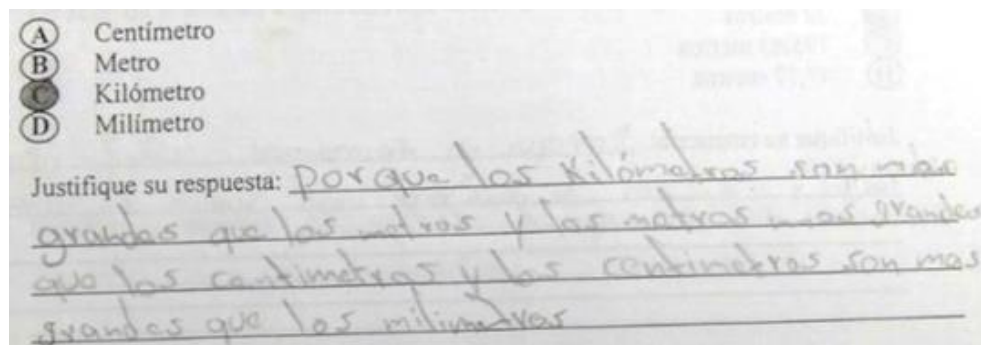 A Centímetro
B Metro
C Kilómetro
D Milímetro
Justifique su respuesta: porque los kilómetros son más
grandes que los metros y los metros mas grandes
que los centimetros y los centimetros son mas
grandes que los milimetros